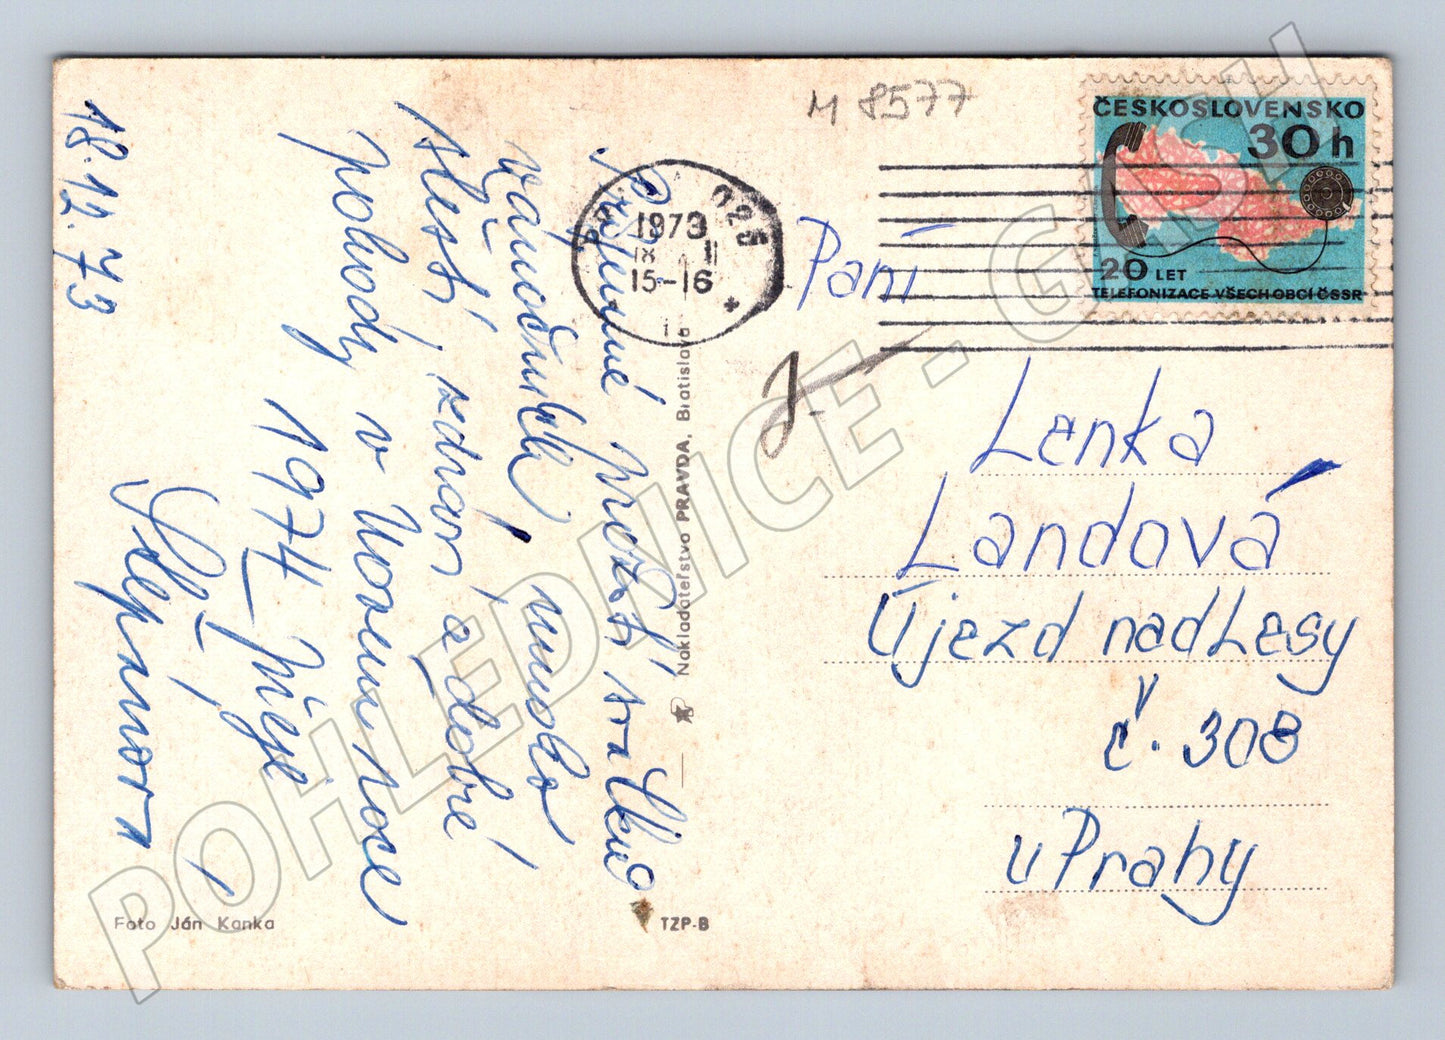 18.12.73
Příjemné prožití svátků
vánočních, mnoho
štěstí, zdraví a dobré
pohody v Novém roce
1974 přeje
Foto Ján Kanka
TZP-B
Nakladateľstvo PRAVDA, Bratislava
M 8577
ČESKOSLOVENSKO
30 h
20 LET
TELEFONIZACE VŠECH OBCÍ ČSSR
025
1973
15-16
Paní
Lenka
Landová
Újezd nad Lesy
č. 308
u Prahy
POHLEDNICE - GASH